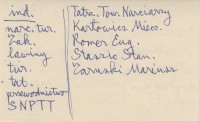 ind.
narc. tur.
Zak.
lawiny
tur.
tat.
przewodnictwo
SNPTT
Tatrz. Tow. Narciarzy
Karłowicz Miecz.
Romer Eug.
Staszic Stan.
Zaruski Mariusz